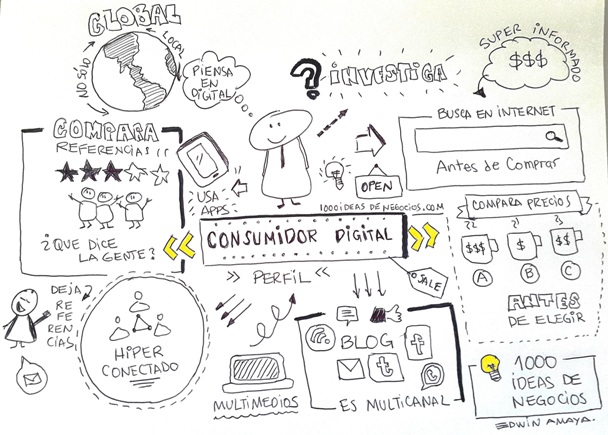 GLOBAL
NO SÓLO
LOCAL
PIENSA
EN
DIGITAL
?
INVESTIGA
SUPER INFORMADO
$$$
BUSCA EN INTERNET
Antes de Comprar
COMPARA
REFERENCIAS
¿QUE DICE
LA GENTE?
USA
APPS
OPEN
1000IDEAS DE NEGOCIOS.COM
CONSUMIDOR DIGITAL
>> PERFIL <<
SALE
COMPARA PRECIOS
$$$
$
$$
A
B
C
ANTES
DE ELEGIR
DEJA
REFERENCIAS
HIPER
CONECTADO
MULTIMEDIOS
BLOG
f
t
ES MULTICANAL
1000
IDEAS DE
NEGOCIOS
EDWIN AMAYA.